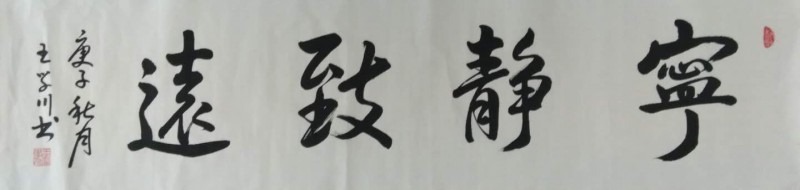 寧靜致遠
庚子秋月
王学川书